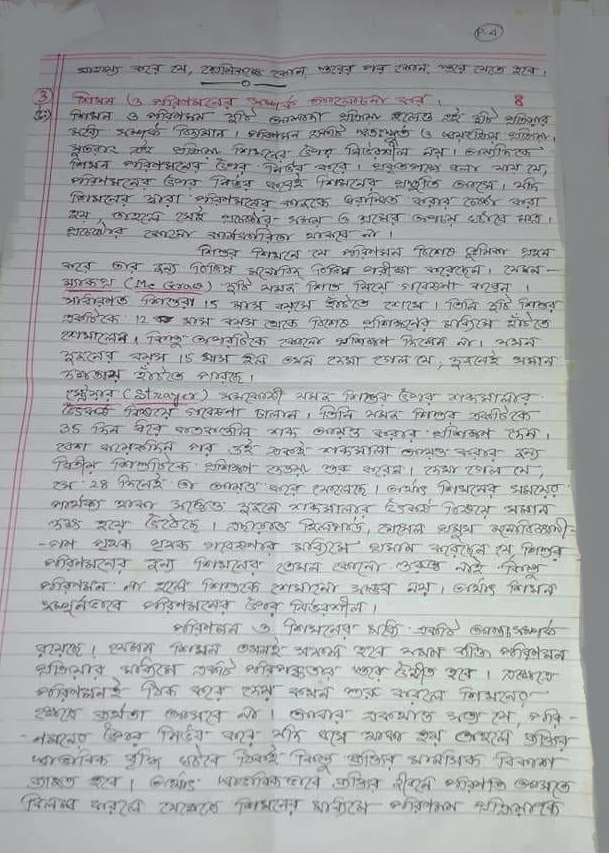 P-4
সাহায্য করে যে, কোন স্তরের পর কোন স্তরে যেতে হবে।
③ শিখন ও পরিণমনের সম্পর্ক আলোচনা কর। 8
শিখন ও পরিণমন দুটি আলাদা প্রক্রিয়া হলেও এই দুটি প্রক্রিয়ার
মধ্যে সম্পর্ক বিদ্যমান। পরিণমন একটি স্বতঃস্ফূর্ত ও প্রক্রিয়া,
সুতরাং এই প্রক্রিয়া শিখনের উপর নির্ভরশীল নয়। অন্যদিকে
শিখন পরিণমনের উপর নির্ভর করে। প্রকৃতপক্ষে বলা যায় যে,
পরিণমনের উপর নির্ভর করেই শিখনের প্রস্তুতি আসে। যদি
শিখনের দ্বারা পরিণমনের কালকে ত্বরান্বিত করার চেষ্টা করা
হয়, তাহলে সেই প্রচেষ্টার সময় ও শ্রমের অপচয় ঘটবে মাত্র।
প্রচেষ্টার কোনো কার্যকারিতা থাকবে না।
শিশুর শিখনে যে পরিণমন বিশেষ ভূমিকা গ্রহণ
করে তার জন্য বিভিন্ন মনোবিদ বিভিন্ন পরীক্ষা করেছেন। যেমন-
ম্যাকগ্র (Mc Graw) দুটি যমজ শিশু নিয়ে গবেষণা করেন।
সাধারণত শিশুরা 15 মাস বয়সে হাঁটতে শেখে। তিনি দুটি শিশুর
একটিকে 12 মাস বয়স থেকে বিশেষ প্রশিক্ষণের মাধ্যমে হাঁটতে
শেখালেন। কিন্তু অপরটিকে কোনো প্রশিক্ষণ দিলেন না। যখন
দুজনের বয়স 15 মাস হল তখন দেখা গেল যে, দুজনেই সমান
দক্ষতায় হাঁটতে পারছে।
স্ট্রেয়ার (Strayer) সমকোষী যমজ শিশুর উপর শব্দমালার
উৎকর্ষ বিষয়ে গবেষণা চালান। তিনি যমজ শিশুর একটিকে
35 দিন ধরে কতকগুলি শব্দ আয়ত্ত করার প্রশিক্ষণ দেন।
বেশ কয়েকদিন পর ওই একই শব্দমালা আয়ত্ত করার জন্য
দ্বিতীয় শিশুটিকে প্রশিক্ষণ দেওয়া শুরু করেন। দেখা গেল যে,
সে 28 দিনেই তা আয়ত্ত করে ফেলেছে। অর্থাৎ শিখনের সময়ের
পার্থক্য থাকা সত্ত্বেও দুজনে শব্দমালার উৎকর্ষ বিষয়ে সমান
দক্ষ হয়ে উঠেছে। এছাড়াও হিলগার্ড, গেসেল প্রমুখ মনোবিজ্ঞানী-
-গণ পৃথক পৃথক গবেষণার মাধ্যমে প্রমাণ করেছেন যে শিশুর
পরিণমনের জন্য শিখনের তেমন কোনো গুরুত্ব নাই কিন্তু
পরিণমন না হলে শিশুকে শেখানো সম্ভব নয়। অর্থাৎ শিখন
সম্পূর্ণভাবে পরিণমনের উপর নির্ভরশীল।
পরিণমন ও শিখনের মধ্যে একটি সম্পর্ক
রয়েছে। যেমন শিখন তখনই সম্ভব হবে যখন ব্যক্তি পরিণমন
প্রক্রিয়ার মাধ্যমে একটি পরিপক্কতার স্তরে উন্নীত হবে। এক্ষেত্রে
পরিণমনই ঠিক করে দেয় কখন শুরু করলে শিখনের
ক্ষেত্রে ব্যর্থতা আসবে না। আবার একথাও সত্য যে, পরি-
-নমনের উপর নির্ভর করে যদি বসে থাকা হয় তাহলে ব্যক্তির
স্বাভাবিক বৃদ্ধি ঘটবে ঠিকই কিন্তু ব্যক্তির মানসিক বিকাশ
ব্যাহত হবে। অর্থাৎ স্বাভাবিকভাবে ব্যক্তির জীবনে পরিণতি আসতে
বিলম্ব ঘটলে সেক্ষেত্রে শিখনের মাধ্যমে পরিণমন প্রক্রিয়াকে